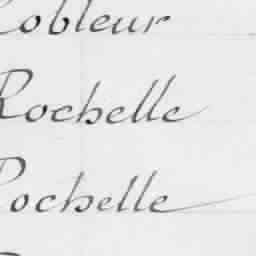 Cobleur
Rochelle
Pochelle